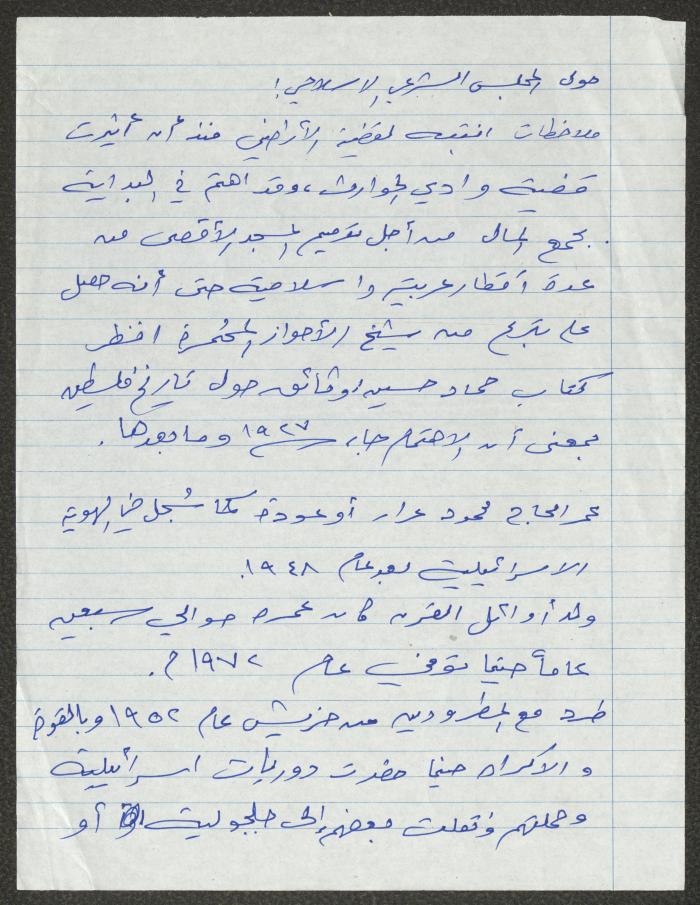 حول المجلس الشرعي الاسلامي!
ملاحظات انتبه لقضية الأراضي منذ أن أثيرت
قضية وادي الحوارث، وقد اهتم في البداية
بجمع المال من أجل ترميم المسجد الأقصى من
عدة أقطار عربية واسلامية حتى أنه حصل
على تبرع من شيخ الأحواز المحمرة انظر
كتاب حماد حسين، وثائق حول تاريخ فلسطين
بمعنى أن الاهتمام جاء سنة ١٩٢٧ وما بعدها.
عمر الحاج محمود عرار أو عودة كما سُجل في الهوية
الاسرائيلية بعد عام ١٩٤٨.
ولد أوائل القرن كان عمره حوالي سبعين
عاماً حينما توفي عام ١٩٧٢م.
طرد مع المطرودين من خريش عام ١٩٥٢ وبالقوة
والاكراه حينما حضرت دوريات اسرائيلية
وحملتهم ونقلت بعضهم إلى جلجولية أو